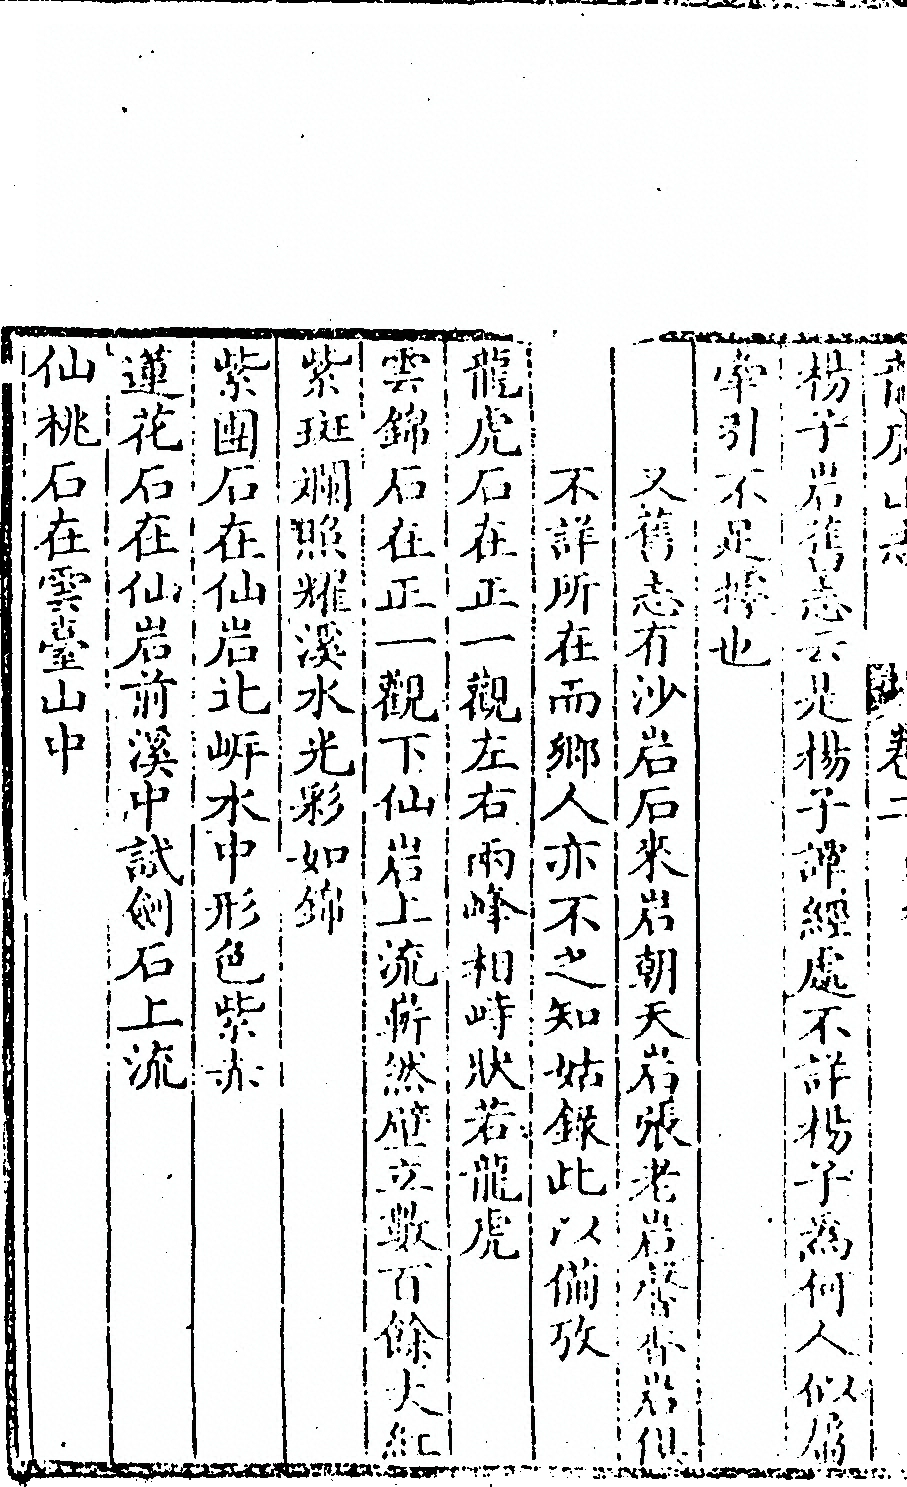 龍虎山志 卷二
楊子岩舊志云是楊子譚經處不詳楊子為何人似屬
牽引不足據也
又舊志有沙岩石來岩朝天岩張老岩馨香岩俱
不詳所在而鄉人亦不之知姑錄此以俻攷
龍虎石在正一觀左右兩峰相峙狀若龍虎
雲錦石在正一觀下仙岩上流嶄然壁立數百餘丈紅
紫斑斕照耀溪水光彩如錦
紫團石在仙岩北岍水中形色紫赤
蓮花石在仙岩前溪中試劍石上流
仙桃石在雲臺山中